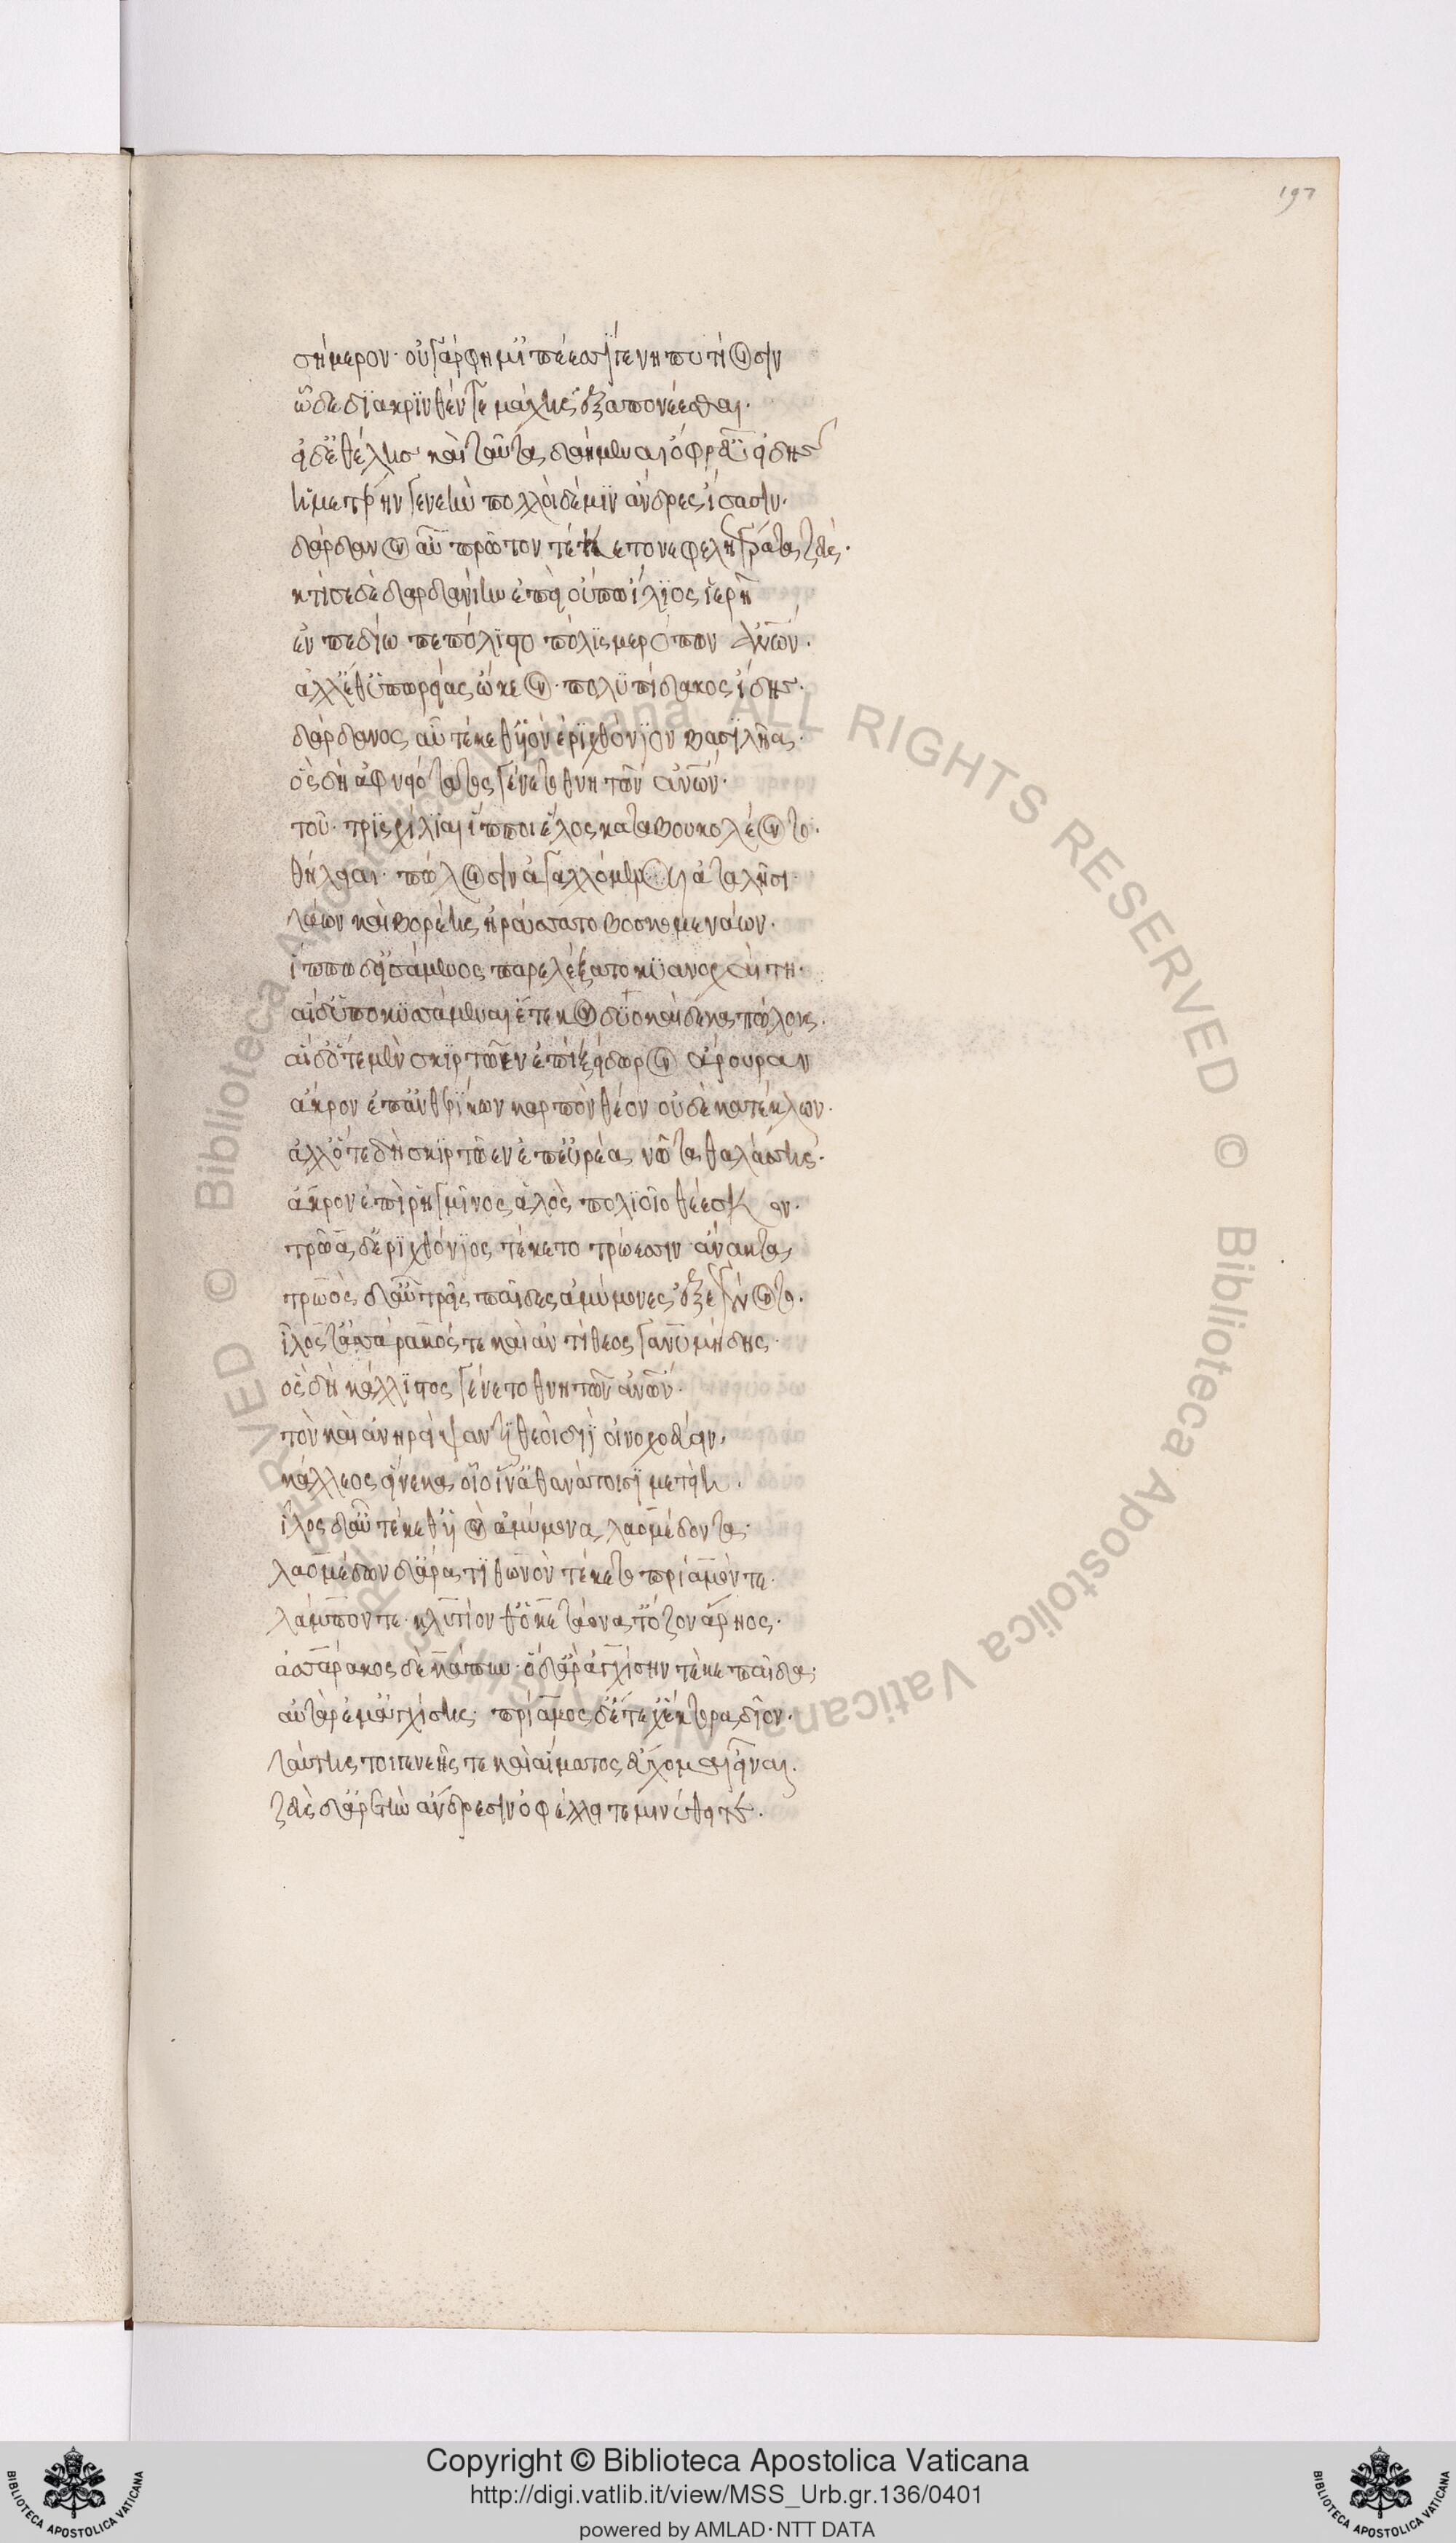 197
σήμερον· οὐ γάρ φημι ἐπέεσσί γε νηπυτίοισιν
ὧδε διακρινθέντε μάχης ἐξαπονέεσθαι·
εἰ δ' ἐθέλεις καὶ ταῦτα δαήμεναι ὄφρ' εὖ εἰδῇς
ἡμετέρην γενεὴν πολλοὶ δέ μιν ἄνδρες ἴσασιν·
δάρδανον αὖ πρῶτον τέκετο νεφεληγερέτα ζεύς·
κτίσε δὲ δαρδανίην ἐπεὶ οὔπω ἴλιος ἱερὴ
ἐν πεδίω πεπόλιστο πόλις μερόπων ἀνων·
ἀλλ' ἔθ' ὑπωρείας ὤκεον· πολυπίδακος ἴδης·
δάρδανος αὖ τέκεθ' υἱὸν ἐριχθόνιον βασιλῆα·
ὃς δὴ ἀφνειότατος γένετο θνητῶν ἀνων·
τοῦ· τρισχίλιαι ἵπποι ἕλος κάτα βουκολέοντο·
θήλειαι· πώλοισιν ἀγαλλόμεναι ἀταλῆσι·
τάων καὶ βορέης ἠράσσατο βοσκομενάων·
ἵππω δ' εἰσάμενος παρελέξατο κυανοχαίτη·
αἱ δ' ὑποκυσσάμεναι ἔτεκον δυοκαίδεκα πώλους·
αἱ δ' ὅτε μὲν σκιρτῶεν ἐπὶ ζείδωρον ἄρουραν
ἄκρον ἐπ' ἀνθερίκων καρπὸν θέον οὐδὲ κατέκλων·
ἀλλ' ὅτε δὴ σκιρτῶεν ἐπ' εὐρέα νῶτα θαλάσσης·
ἄκρον ἐπὶ ῥηγμῖνος ἁλὸς πολιοῖο θέεσκον·
τρῶα δ' ἐριχθόνιος τέκετο τρώεσσιν ἄνακτα
τρωὸς δ' αὖ τρεῖς παῖδες ἀμύμονες ἐξεγένοντο·
ἶλός τ' ἀσσάρακός τε καὶ ἀντίθεος γανυμήδης·
ὃς δὴ κάλλιστος γένετο θνητῶν ἀνων·
τὸν καὶ ἀνηρείψαντο θεοὶ διὶ οἰνοχοεύειν·
κάλλεος εἵνεκα οἷο ἵν' ἀθανάτοισι μετείη·
ἶλος δ' αὖ τέκεθ' υἱὸν ἀμύμονα λαομέδοντα·
λαομέδων δ' ἄρα τιθωνὸν τέκετο πρίαμόν τε·
λάμπόν τε· κλυτίον θ' ἱκετάονα τ' ὄζον ἄρηος·
ἀσσάρακος δὲ κάπυν· ὁ δ' ἄρ' ἀγχίσην τέκε παῖδα·
αὐτὰρ ἔμ' ἀγχίσης· πρίαμος δ' ἔτεχ' ἕκτορα δῖον·
ταύτης τοι γενεῆς τε καὶ αἵματος εὔχομαι εἶναι·
ζεὺς δ' ἀρετὴν ἄνδρεσιν ὀφέλλει τε μινύθει τε·
Copyright © Biblioteca Apostolica Vaticana
http://digi.vatlib.it/view/MSS_Urb.gr.136/0401
powered by AMLAD·NTT DATA